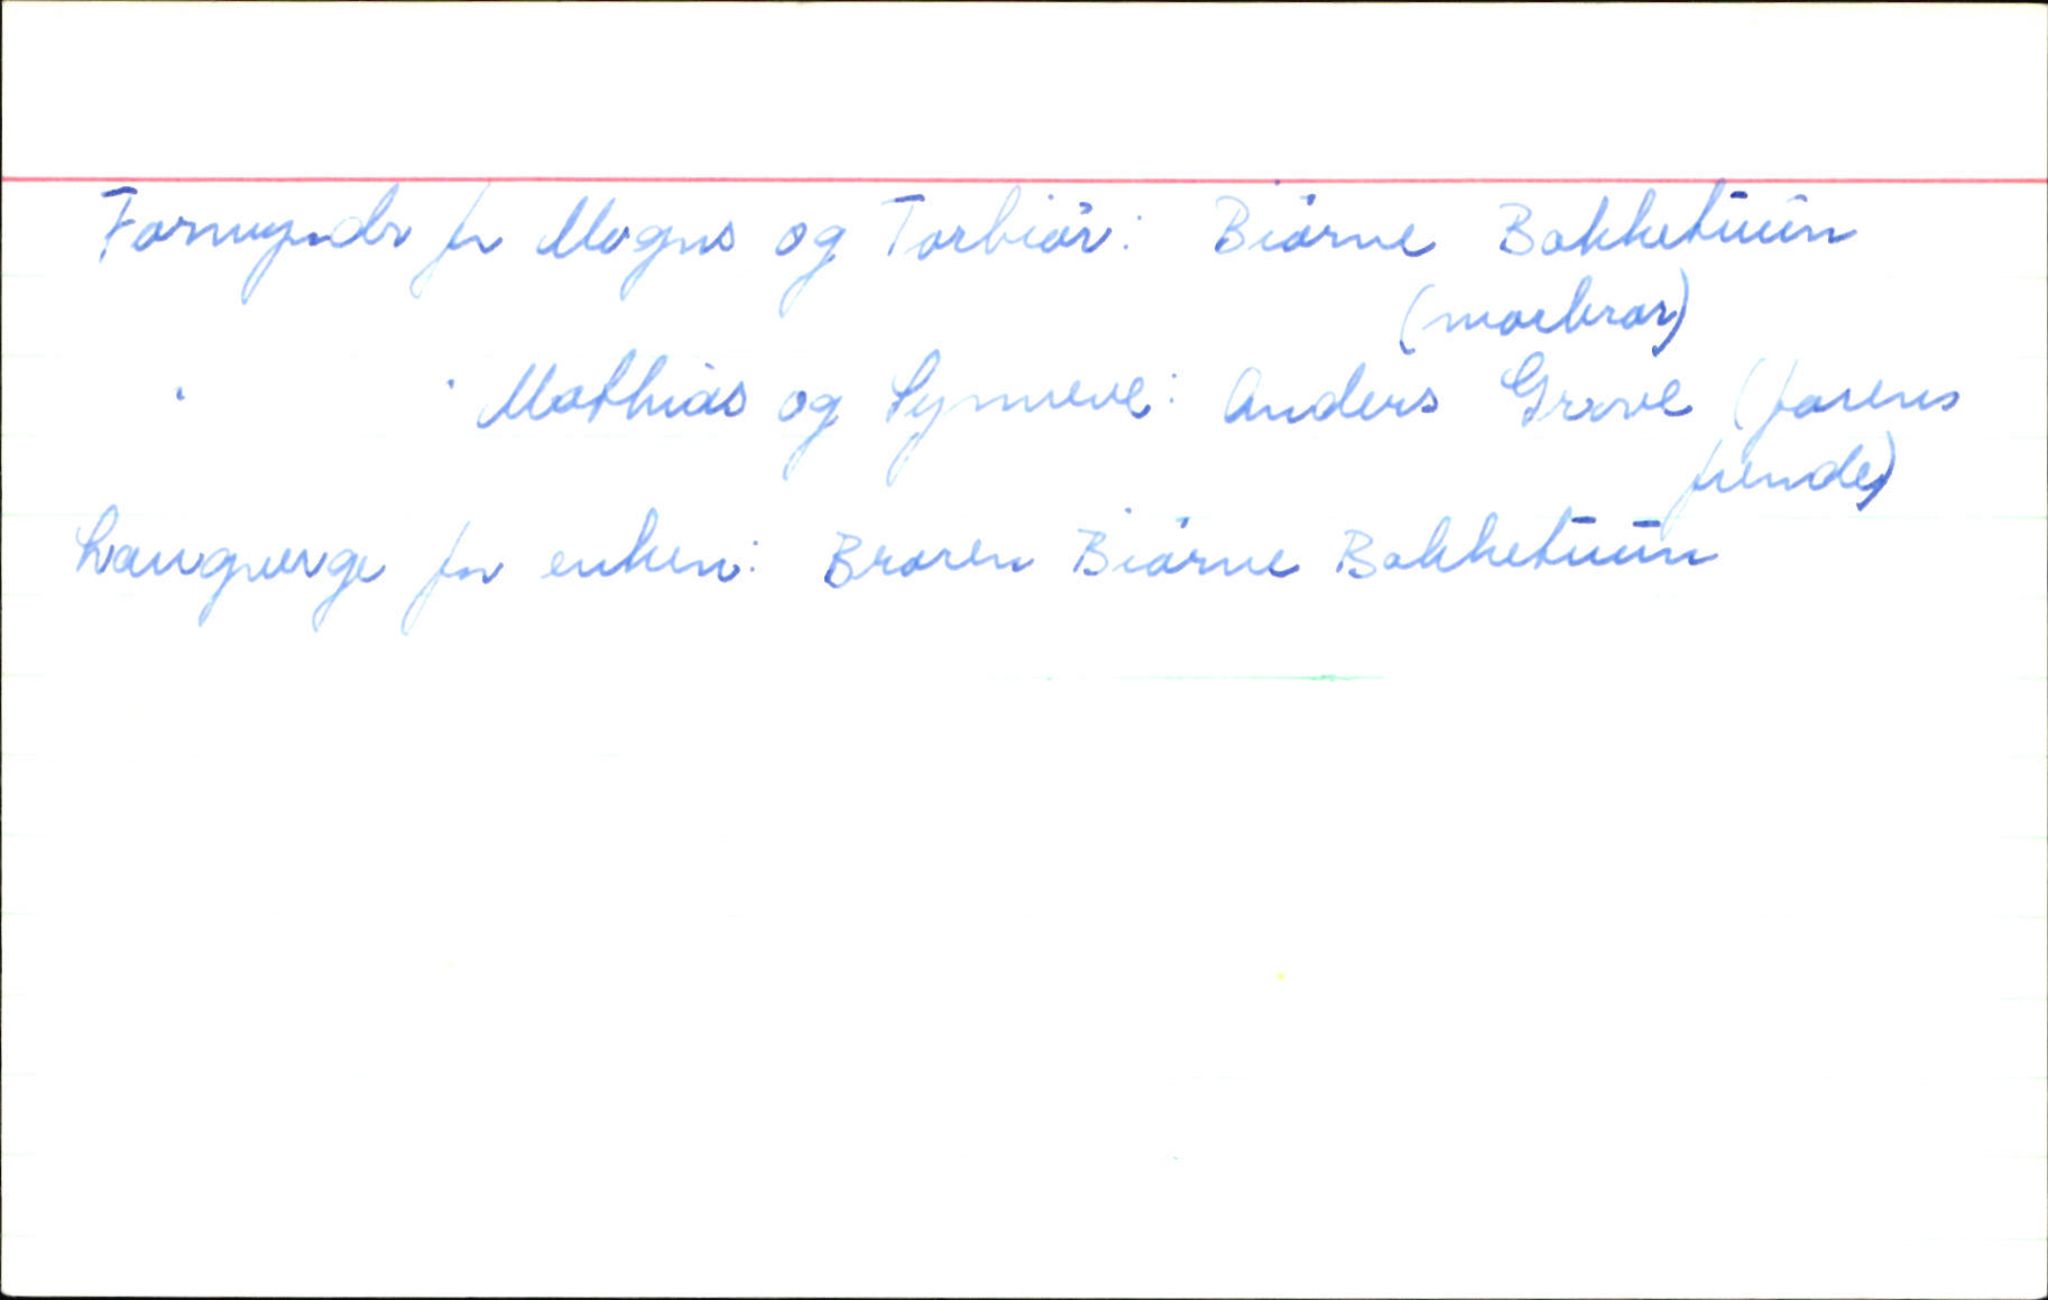 Formyndr for Mogns og Torbiør: Biørne Bakketuun
(morbror)
" " Mathias og Synneve: Anders Grove (farens
frende)
Laugverge for enken: Broren Biørne Bakketuun